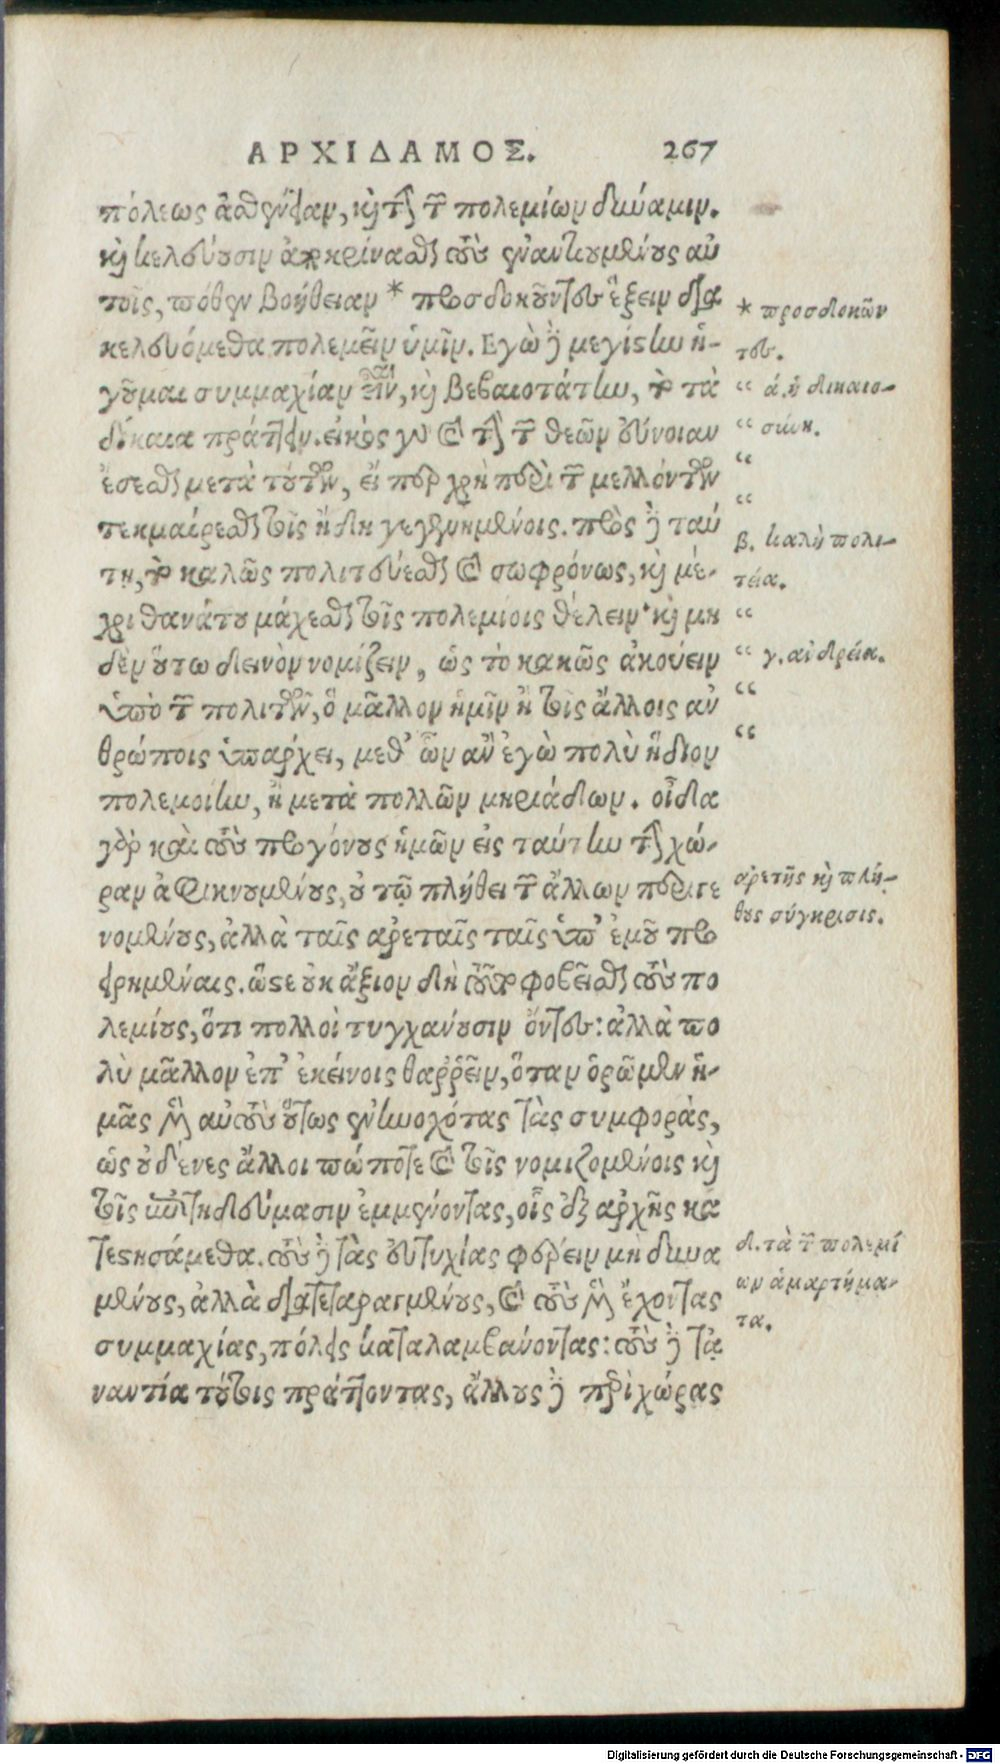 ΑΡΧΙΔΑΜΟΣ. 267
πόλεως ἀσθένειαν, καὶ τὴν τῶν πολεμίων δύναμιν.
καὶ κελεύουσιν ἀποκρίνασθαι τοὺς ἐναντιουμένους αὐ
τοῖς, πόθεν βοήθειαν * προσδοκοῦντες ἕξειν δια
κελευόμεθα πολεμεῖν ὑμῖν. Εγὼ δὲ μεγίστην ἡ-
γοῦμαι συμμαχίαν εἶναι, καὶ βεβαιοτάτην, τὸ τὰ
δίκαια πράττειν. εἰκὸς γὰρ καὶ τὴν τῶν θεῶν εὔνοιαν
ἔσεσθαι μετὰ τούτων, εἴ περ χρὴ περὶ τῶν μελλόντων
τεκμαίρεσθαι τοῖς ἤδη γεγενημένοις. πρὸς δὲ ταύ
τῃ, τὸ καλῶς πολιτεύεσθαι καὶ σωφρόνως, καὶ μέ-
χρι θανάτου μάχεσθαι τοῖς πολεμίοις θέλειν· καὶ μη
δὲν οὕτω δεινὸν νομίζειν, ὡς τὸ κακῶς ἀκούειν
ὑπὸ τῶν πολιτῶν, ὃ μᾶλλον ἡμῖν ἢ τοῖς ἄλλοις ἀν
θρώποις ὑπάρχει, μεθ' ὧν ἂν ἐγὼ πολὺ ἥδιον
πολεμοίην, ἢ μετὰ πολλῶν μυριάδων. οἶδα
γὰρ καὶ τοὺς προγόνους ἡμῶν εἰς ταύτην τὴν χώ-
ραν ἀφικνουμένους, οὐ τῷ πλήθει τῶν ἄλλων περιγε
νομένους, ἀλλὰ ταῖς ἀρεταῖς ταῖς ὑπ' ἐμοῦ προ
ειρημέναις. ὥστε οὐκ ἄξιον διὰ τοῦτο φοβεῖσθαι τοὺς πο
λεμίους, ὅτι πολλοὶ τυγχάνουσιν ὄντες: ἀλλὰ πο
λὺ μᾶλλον ἐπ' ἐκείνοις θαῤῥεῖν, ὅταν ὁρῶμεν ἡ-
μᾶς μὲν αὐτοὺς οὕτως ἐνηνοχότας τὰς συμφορὰς,
ὡς οὐδένες ἄλλοι πώποτε καὶ τοῖς νομιζομένοις καὶ
τοῖς ἐπιτηδεύμασιν ἐμμένοντας, οἷς ἐξ ἀρχῆς κα
τεστησάμεθα. τοὺς δὲ τὰς εὐτυχίας φέρειν μὴ δυνα
μένους, ἀλλὰ διατεταραγμένους, καὶ τοὺς μὲν ἔχοντας
συμμαχίας, πόλεις καταλαμβάνοντας: τοὺς δὲ τἀ
ναντία τούτοις πράττοντας, ἄλλους δὲ περὶ χώρας
* προσδοκῶν
τες.
" ά. ἡ δικαιο-
" σύνη.
"
"
β. καλὴ πολι-
τεία.
"
" γ. ἀνδρεία.
"
"
ἀρετῆς καὶ πλή-
θους σύγκρισις.
δ. τὰ τῶν πολεμί
ων ἁμαρτήμα-
τα.
Digitalisierung gefördert durch die Deutsche Forschungsgemeinschaft - DFG